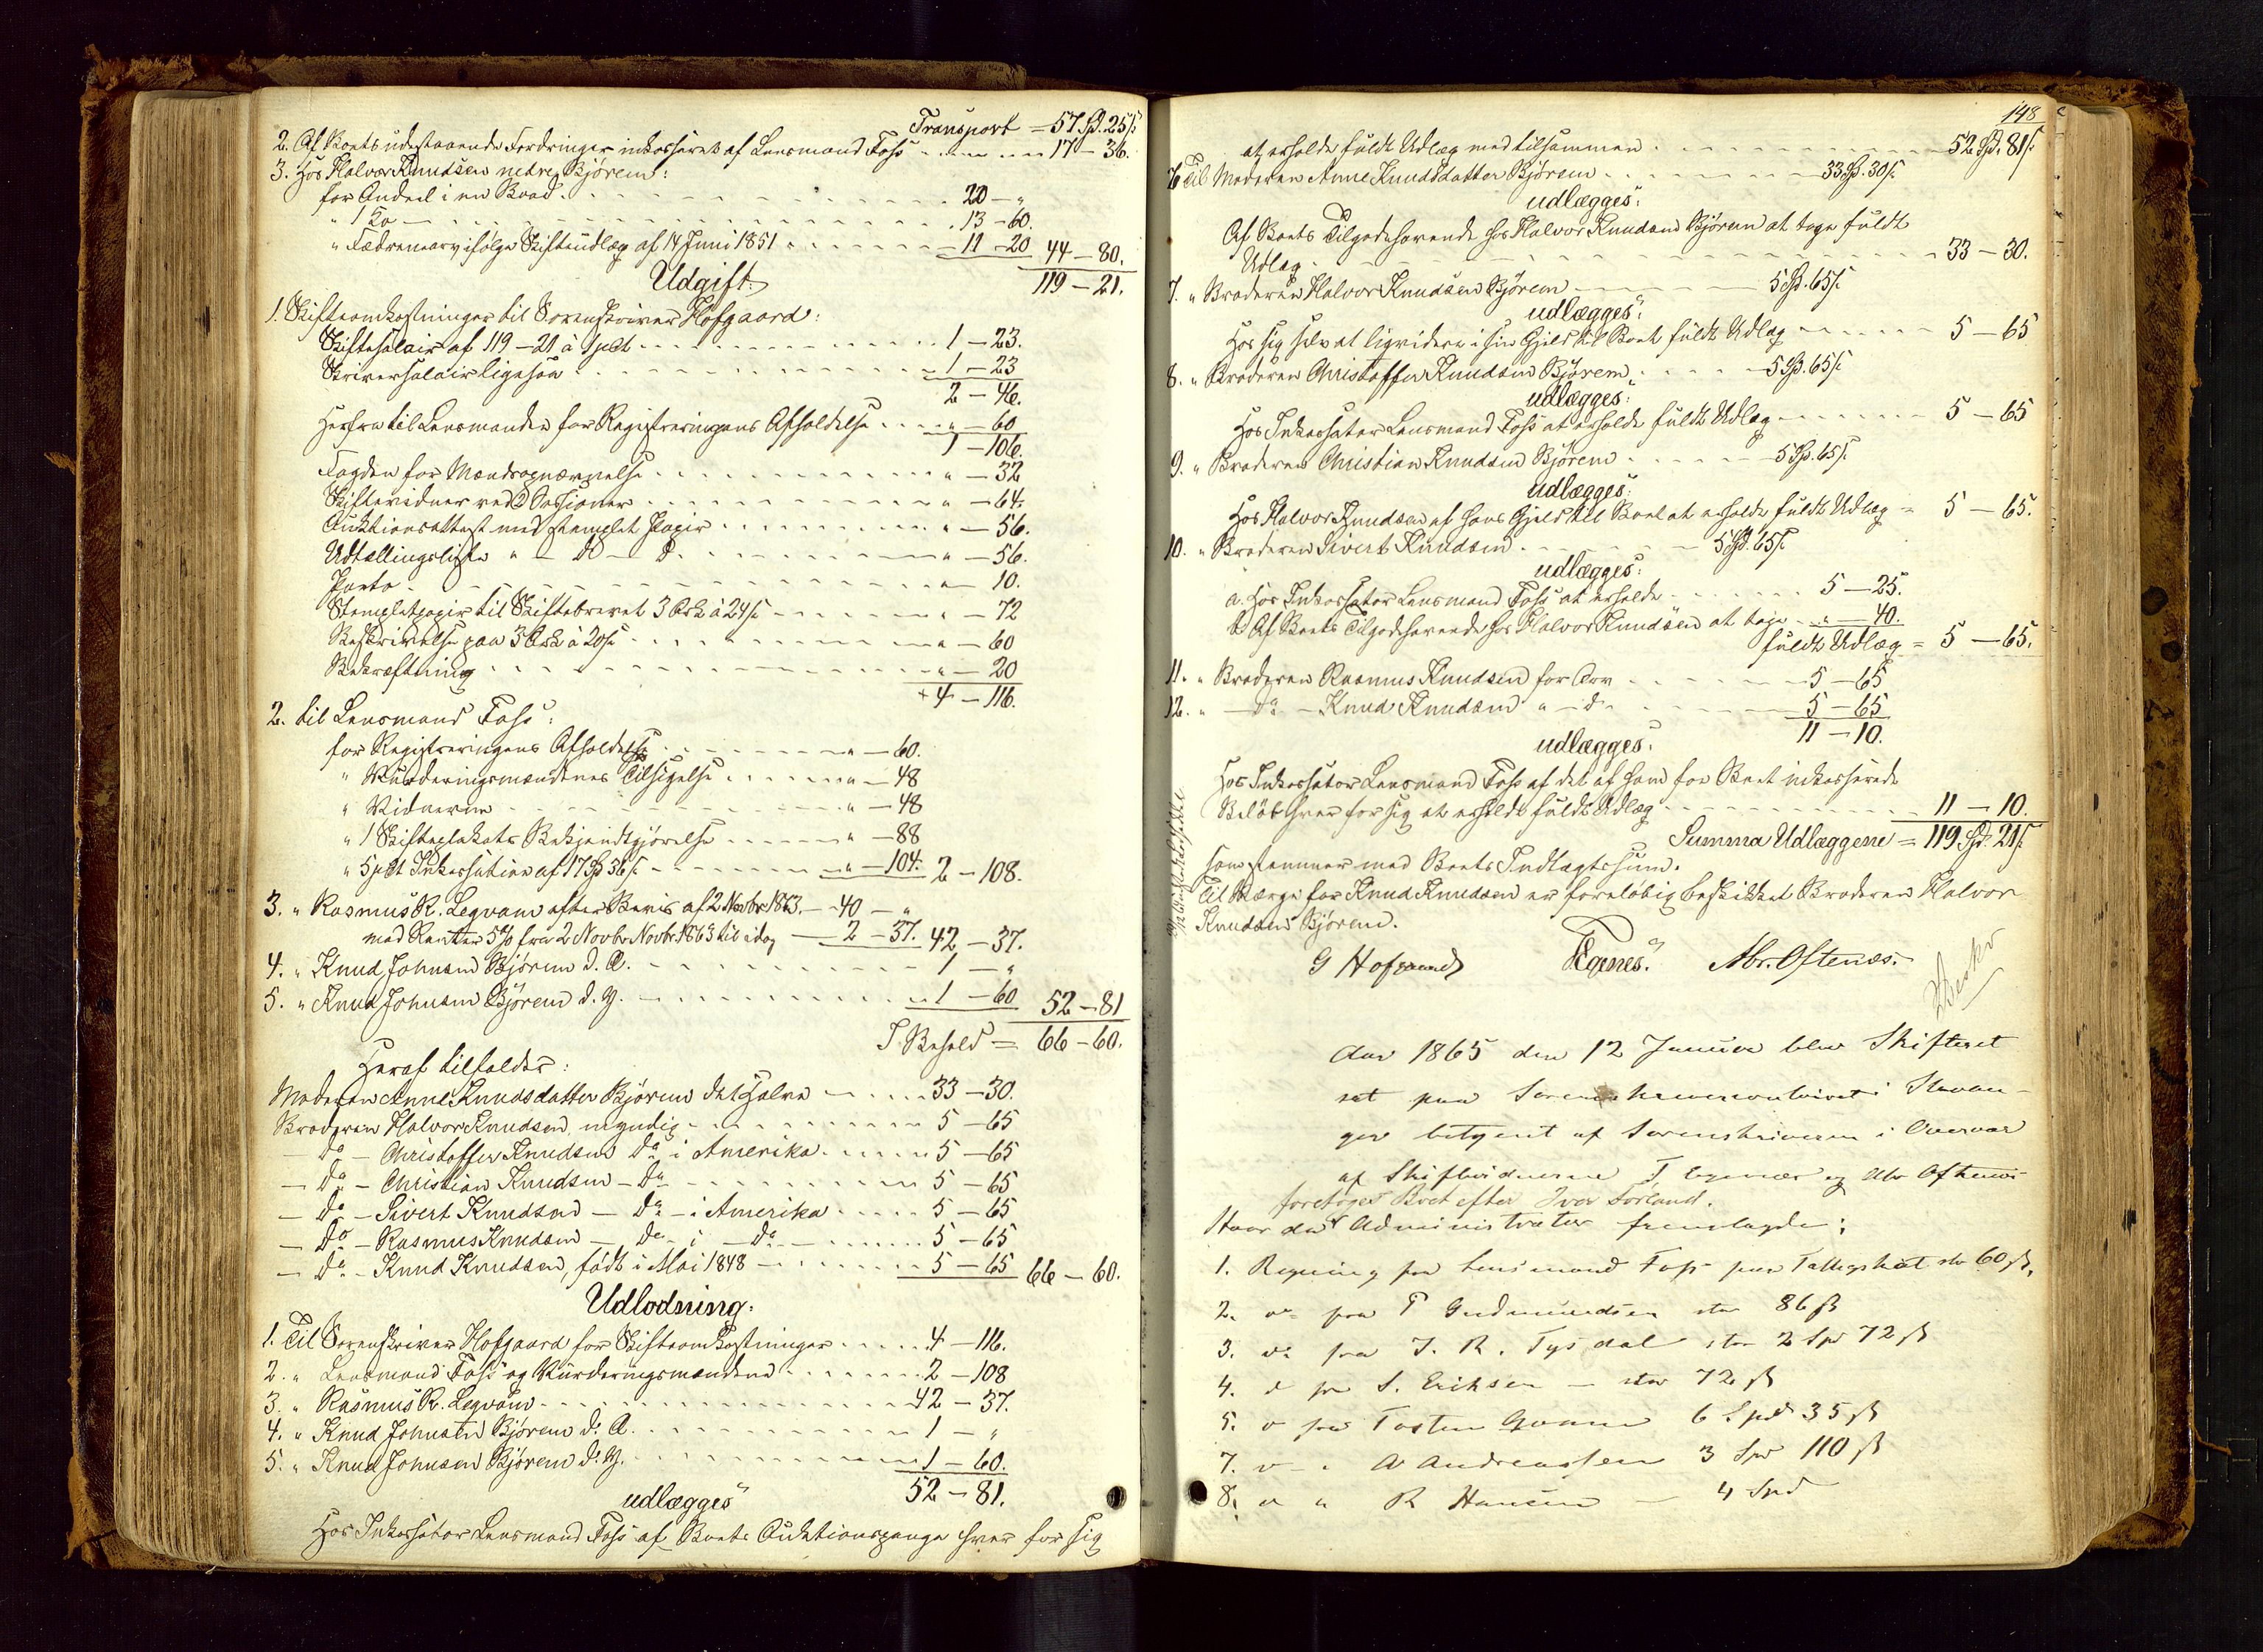 Transport = 57 Sp. 25 ß.
2. Af Boets udestaaende Fordringer inkasseret af Lensmand Foss 17 – 36.
3. Hos Halvor Knudsen nedre Bjørem:
for Andeel i en Baad 20 – "
" 1 Ko 13 – 60.
" Fædrenearv ifølge Skifteudlæg af 14 Juni 1851 11 – 20 44 – 80.
119 – 21.
Udgift:
1. Skifteomkostninger til Sorenskriver Hofgaard:
Skiftesalair af 119 – 21 a 1 pCt 1 – 23.
Skriversalair ligesaa 1 – 23
2 – 46.
Herfra til Lensmanden for Registreringens Afholdelse " – 60
1 – 106.
Fogden for Mændsopnævnelse " – 32
Skiftevidner ved 2 Sessioner " – 64.
Auktionsattest med stemplet Papir " – 56.
Udtællingsliste " – D – D " – 56.
Porto " – 10.
Stempletpapir til Skiftebrevet 3 Ark à 24 ß " – 72
Beskrivelse paa 3 Ark à 20 ß " – 60
Bekræftning " – 20
+ 4 – 116.
2. til Lensmand Foss:
for Registreringens Afholdelse " – 60.
" Vurderingsmændenes Tilsigelse " – 48
" Vidnerne " – 48
" 1 Skifteplakats Bekjendtgjørelse " – 88
" 5 pCt Inkassation af 17 Sp 36 ß " – 104. 2 – 108.
3. " Rasmus R. Legvam efter Bevis af 2 Novbr 1863 – 40 – "
med Renter 5% fra 2 Novbr Novbr 1863 til idag 2 – 37. 42 – 37.
4. " Knud Johnsen Bjørem d. Æ. 1 – "
5. " Knud Johnsen Bjørem d. y. 1 – 60 52 – 81
I Behold = 66 – 60.
Heraf tilfalder:
Moderen Anne Knudsdatter Bjørem det Halve 33 – 30.
Broderen Halvor Knudsen, myndig 5 – 65
– do – Christoffer Knudsen do i Amerika 5 – 65
– do – Christian Knudsen – do 5 – 65
– do – Sivert Knudsen – do – i Amerika 5 – 65
– do – Rasmus Knudsen – do – i – do 5 – 65
– do – Knud Knudsen, født i Mai 1848 5 – 65 66 – 60.
Udlodning:
1. Til Sorenskriver Hofgaard for Skifteomkostninger 4 – 116.
2. " Lensmand Foss og Vurderingsmændene 2 – 108
3. " Rasmus R. Legvam 42 – 37.
4. " Knud Johnsen Bjørem d. Æ. 1 – "
5. " Knud Johnsen Bjørem d. y. 1 – 60.
52 – 81.
udlægges
Hos Inkassator Lensmand Foss af Boets Auktionspenge hver for sig
148
at erholde fuldt Udlæg med tilsammen 52 Sp. 81 ß.
6 Til Moderen Anne Knudsdatter Bjørem 33 Sp. 30 ß.
udlægges:
Af Boets Tilgodehavende hos Halvor Knudsen Bjørem at tage fuldt
Udlæg 33 – 30.
7. " Broderen Halvor Knudsen Bjørem 5 Sp. 65 ß
udlægges:
Hos sig selv at liqvidere i sin Gjeld til Boet fuldt Udlæg 5 – 65
8. " Broderen Christoffer Knudsen Bjørem 5 Sp. 65 ß
udlægges:
Hos Inkassator Lensmand Foss at erholde fuldt Udlæg 5 – 65
9. " Broderen Christian Knudsen Bjørem 5 Sp. 65 ß.
udlægges:
Hos Halvor Knudsen af hans Gjeld til Boet at erholde fuldt Udlæg = 5 – 65.
10. " Broderen Sivert Knudsen 5 Sp. 65 ß.
udlægges:
a. Hos Inkassator Lensmand Foss at erholde 5 – 25.
b Af Boets Tilgodehavende hos Halvor Knudsen at tage " – 40.
fuldt Udlæg = 5 – 65.
11. " Broderen Rasmus Knudsen for Arv 5 – 65
12. " – do – Knud Knudsen " – d 5 – 65
11 – 10.
udlægges:
Hos Inkassator Lensmand Foss af det af ham for Boet inkasserede
Beløb hver for sig at erholde fuldt Udlæg 11 – 10.
Summa Udlæggene = 119 Sp. 21 ß.
som stemmer med Boets Indtægtssum.
Til Værge for Knud Knudsen er foreløbig beskikket Broderen Halvor
Knudsen Bjørem.
G Hofgaard T Egenes. Abr. Oftenæs.
Aar 1865 den 12 Januar blev Skifteret
sat paa Sorenskrivercontoiret i Stavan-
ger betjent af Sorenskriveren i Overvær
af Skiftevidnerne T Egenæs og Abr Oftenæs
foretoges Boet efter Iver Førland.
Hvor da Administrator fremlagde:
1. Regning fra Lensmand Foss paa Tallighat stor 60 ß,
2. do fra P Gudmundsen stor 86 ß
3. do fra J. R. Tysdal stor 2 Sp 72 ß
4. d fra S. Eriksen – stor 72 ß
5. d fra Tosten 6 Spd 35 ß
7. d – " A Andreassen 3 Spd 110 ß
8. d " R Hansen – 4 Spd